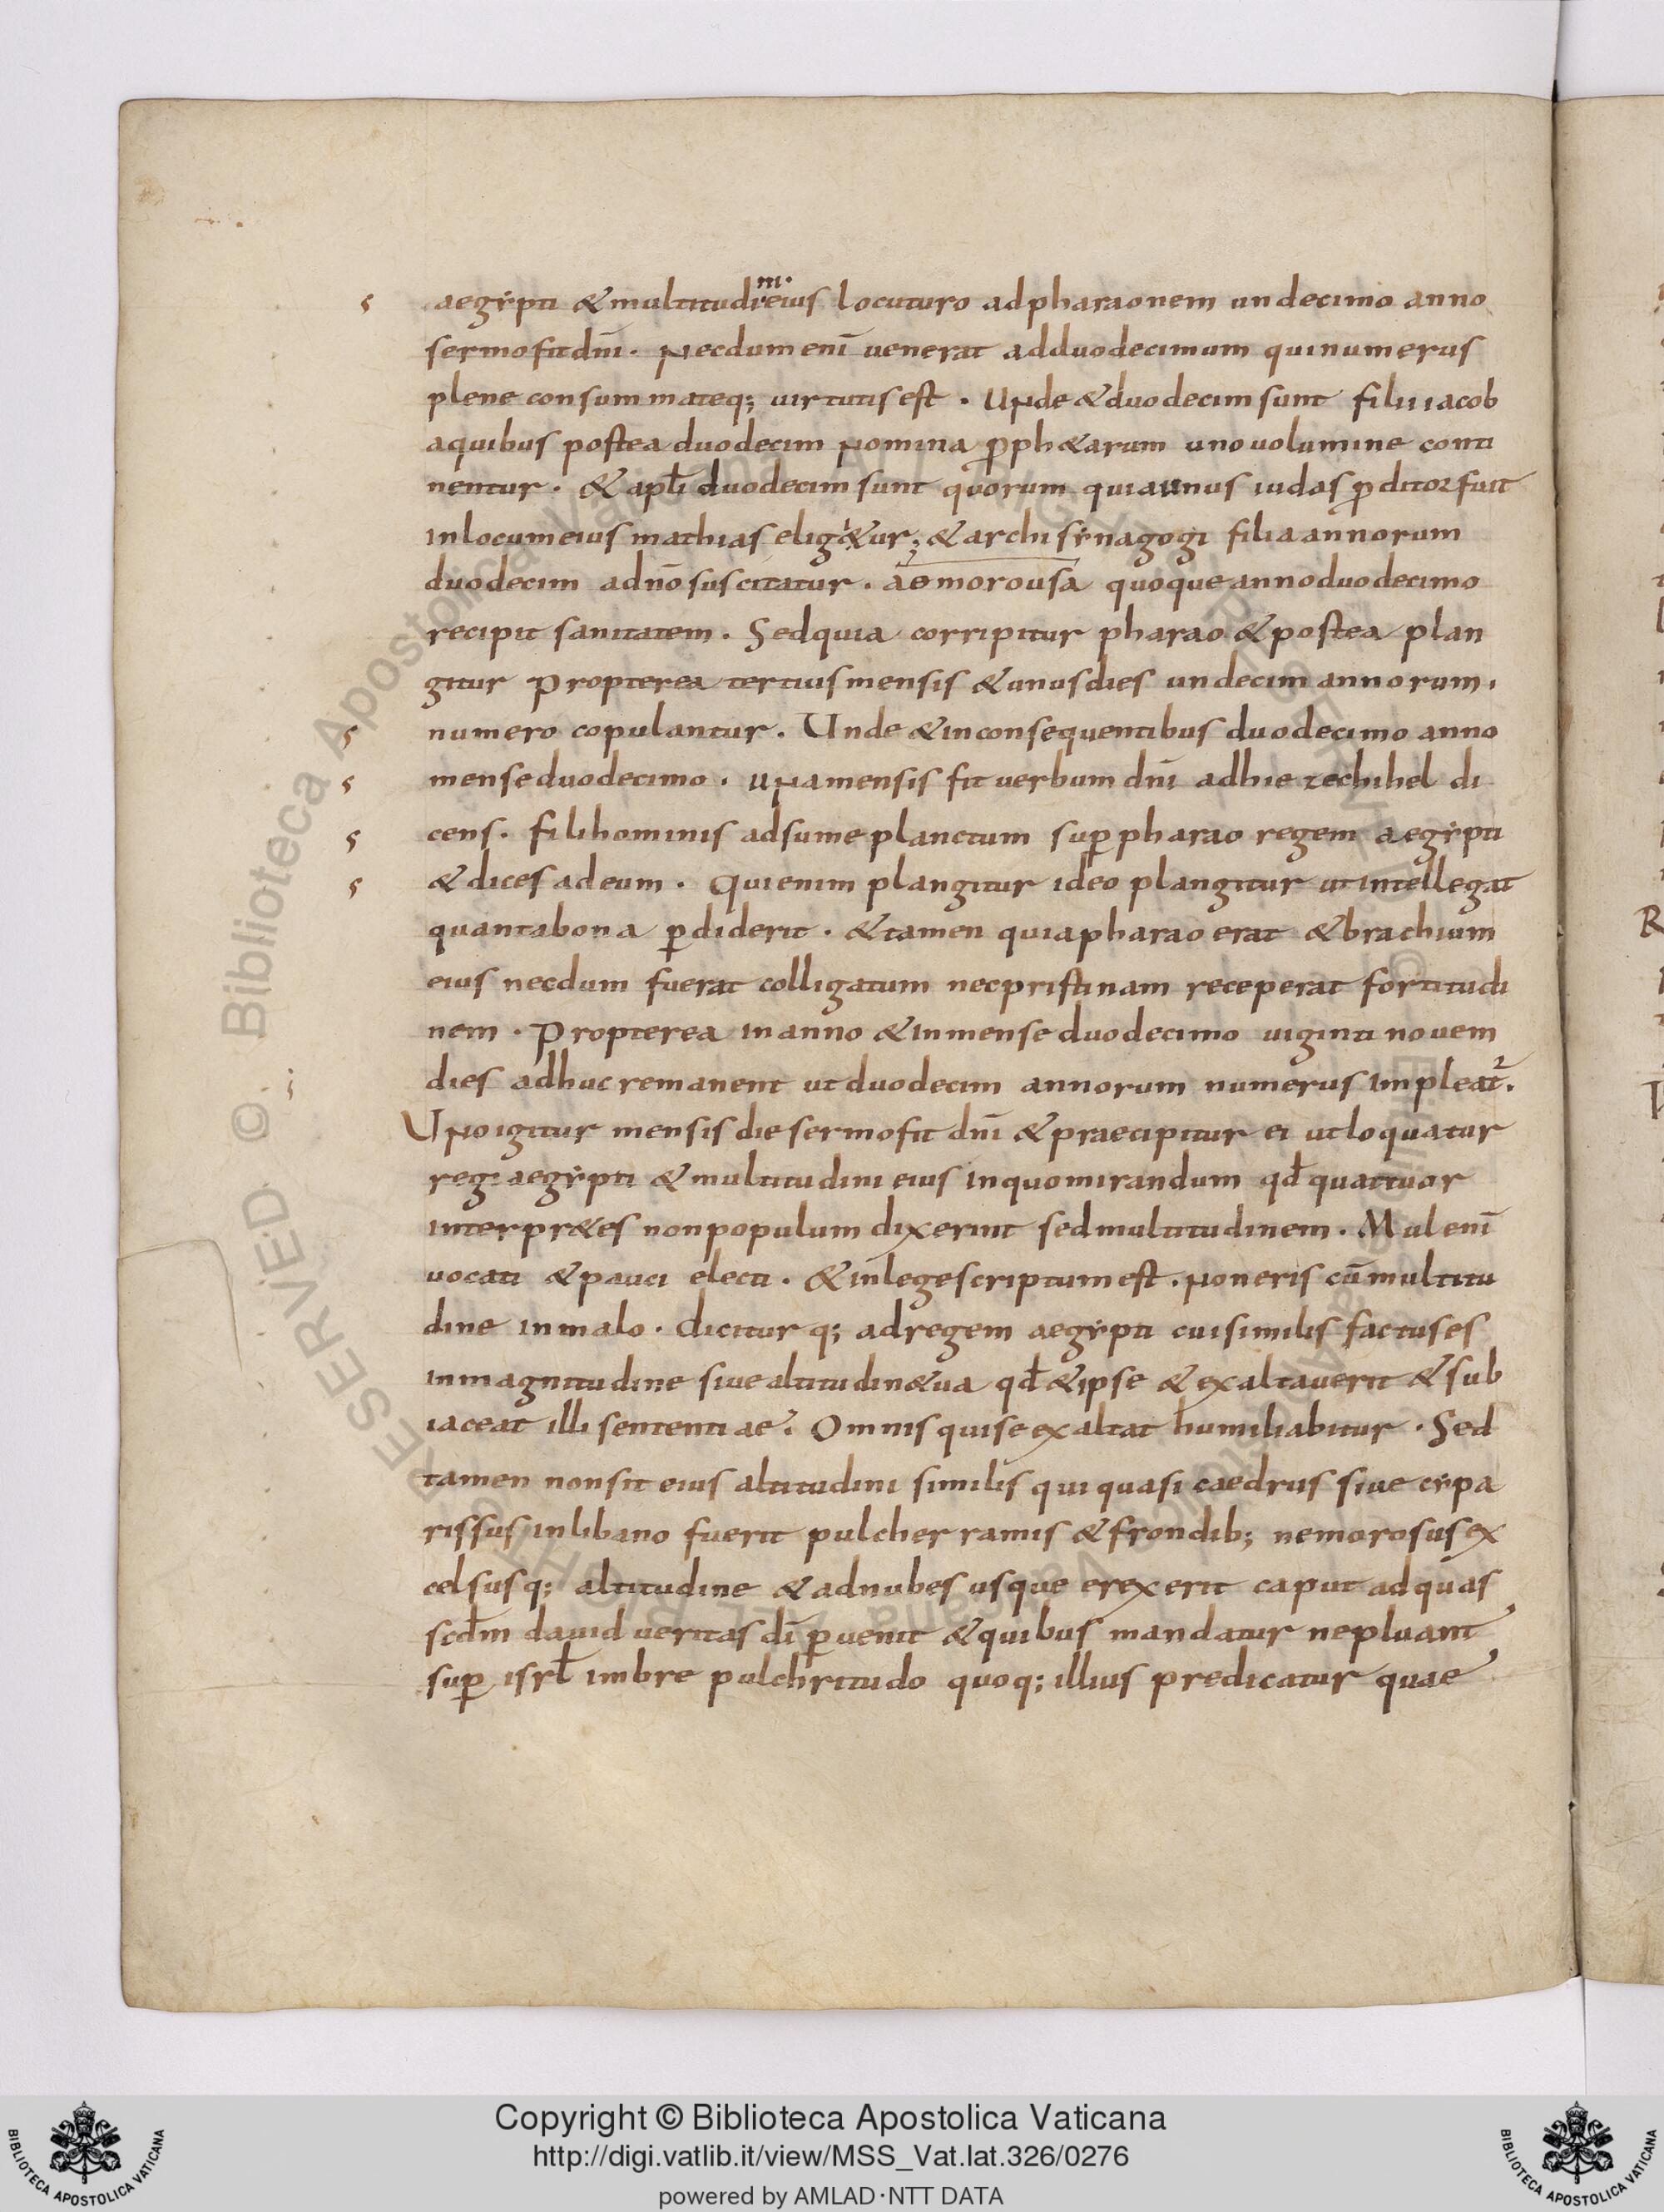 aegẏpti & multitudi eius locuturo ad pharaonem undecimo anno
ni
sermo fit dnī. Necdum enī venerat ad duodecimum qui numerus
plene consummateq; uirtutis est. Unde & duodecim sunt filii iacob
a quibus postea duodecim Nomina ꝓph&arum uno volumine conti
nentur. & apłi duodecim sunt quorum quia unus iudas ꝓditor fuit
in locum eius mathias elig&ur; & archisẏnagogi filia annorum
duodecim a dnō suscitatur. aemorousa quoque anno duodecimo
recipit sanitatem. Sed quia corripitur pharao & postea plan
gitur Propterea tertius mensis & unus dies undecim annorum.
numero copulantur. Unde & in consequentibus duodecimo anno
mense duodecimo. una mensis fit verbum dnī ad hiezechihel di
cens. fili hominis adsume planctum suꝑ pharao regem aegẏpti
& dices ad eum. Qui enim plangitur ideo plangitur ut intellegat
quanta bona ꝑdiderit. & tamen quia pharao erat & brachium
eius necdum fuerat colligatum nec pristinam receperat fortitudi
nem. Propterea in anno & in mense duodecimo uiginti novem
dies adhuc remanent ut duodecim annorum numerus impleat².
Uno igitur mensis die sermo fit dnī & praecipitur ei ut loquatur
regi aegẏpti & multitudini eius in quo mirandum qđ quattuor
interpr&es non populum dixerint sed multitudinem. Mul enī
vocati & pauci electi. & in lege scriptum est. Non eris cū multitu
dine in malo. dicitur q; ad regem aegẏpti cui similis factus es
in magnitudine sive altitudin& ua qđ & ipse & exaltaverit & sub
iaceat illi sententiae. Omnis qui se exaltat humiliabitur. Sed
tamen non sit eius altitudini similis qui quasi caedrus sive cẏpa
rissus in libano fuerit pulcher ramis & frondib; nemorosus ex
celsusq; altitudine & ad nubes usque erexerit caput ad quas
scdm david veritas dī ꝑvenit & quibus mandatur ne pluant
suꝑ isrł imbre pulchritudo quoq; illius predicatur quae
Copyright © Biblioteca Apostolica Vaticana
http://digi.vatlib.it/view/MSS_Vat.lat.326/0276
powered by AMLAD·NTT DATA
BIBLIOTECA APOSTOLICA VATICANA
BIBLIOTECA APOSTOLICA VATICANA